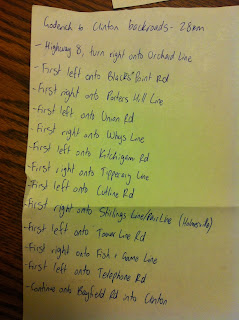 Goderich to Clinton backroads - 28km
- Highway 8, turn right onto Orchard Line
- First left onto Blacks' Point Rd
- First right onto Porters Hill Line
- First left onto Union Rd
- First right onto Whys Line
- First left onto Kitchigami Rd
- First right onto Tipperary Line
- First left onto Cutline Rd
- First right onto Stirlings Line/Parr Line (Holmesville)
- First left onto Tower Line Rd
- First right onto Fish + Game Line
- First left onto Telephone Rd
- Continue onto Bayfield Rd into Clinton